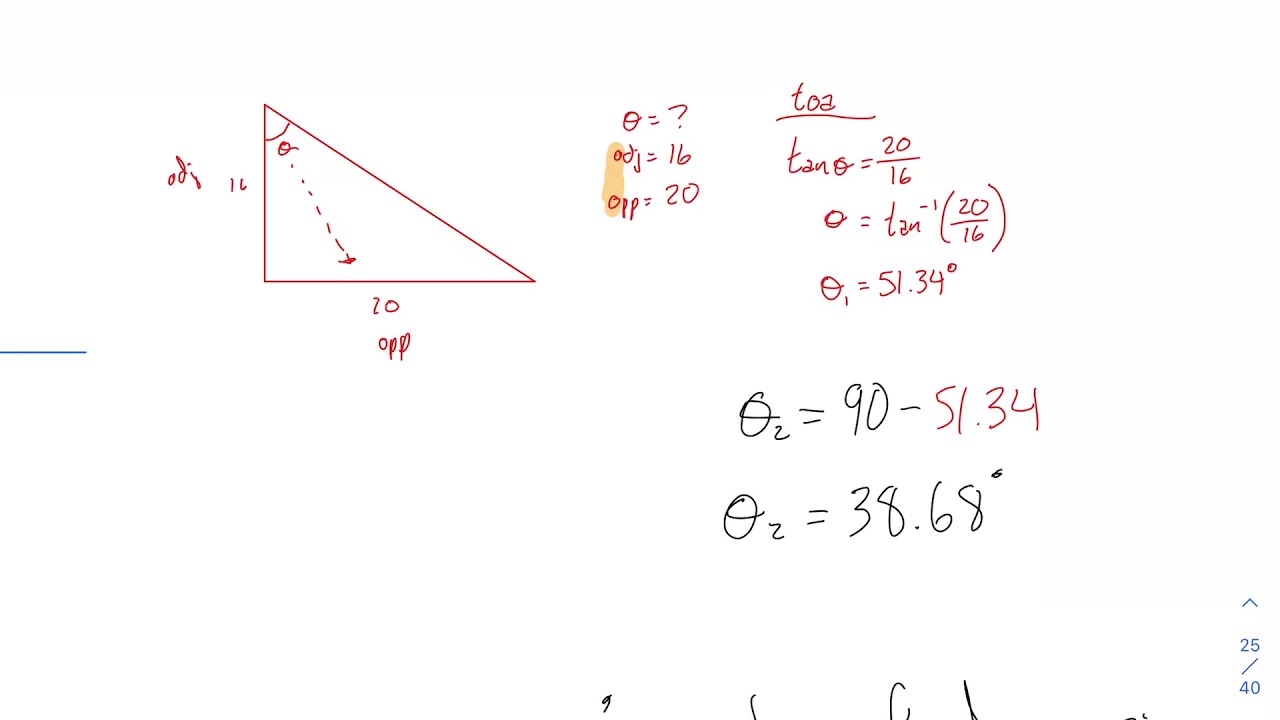 adj 16
θ
20
opp
θ = ?
adj = 16
opp = 20
toa
tanθ = 20/16
θ = tan⁻¹(20/16)
θ₁ = 51.34°
θ₂ = 90 - 51.34
θ₂ = 38.68°
25
/
40